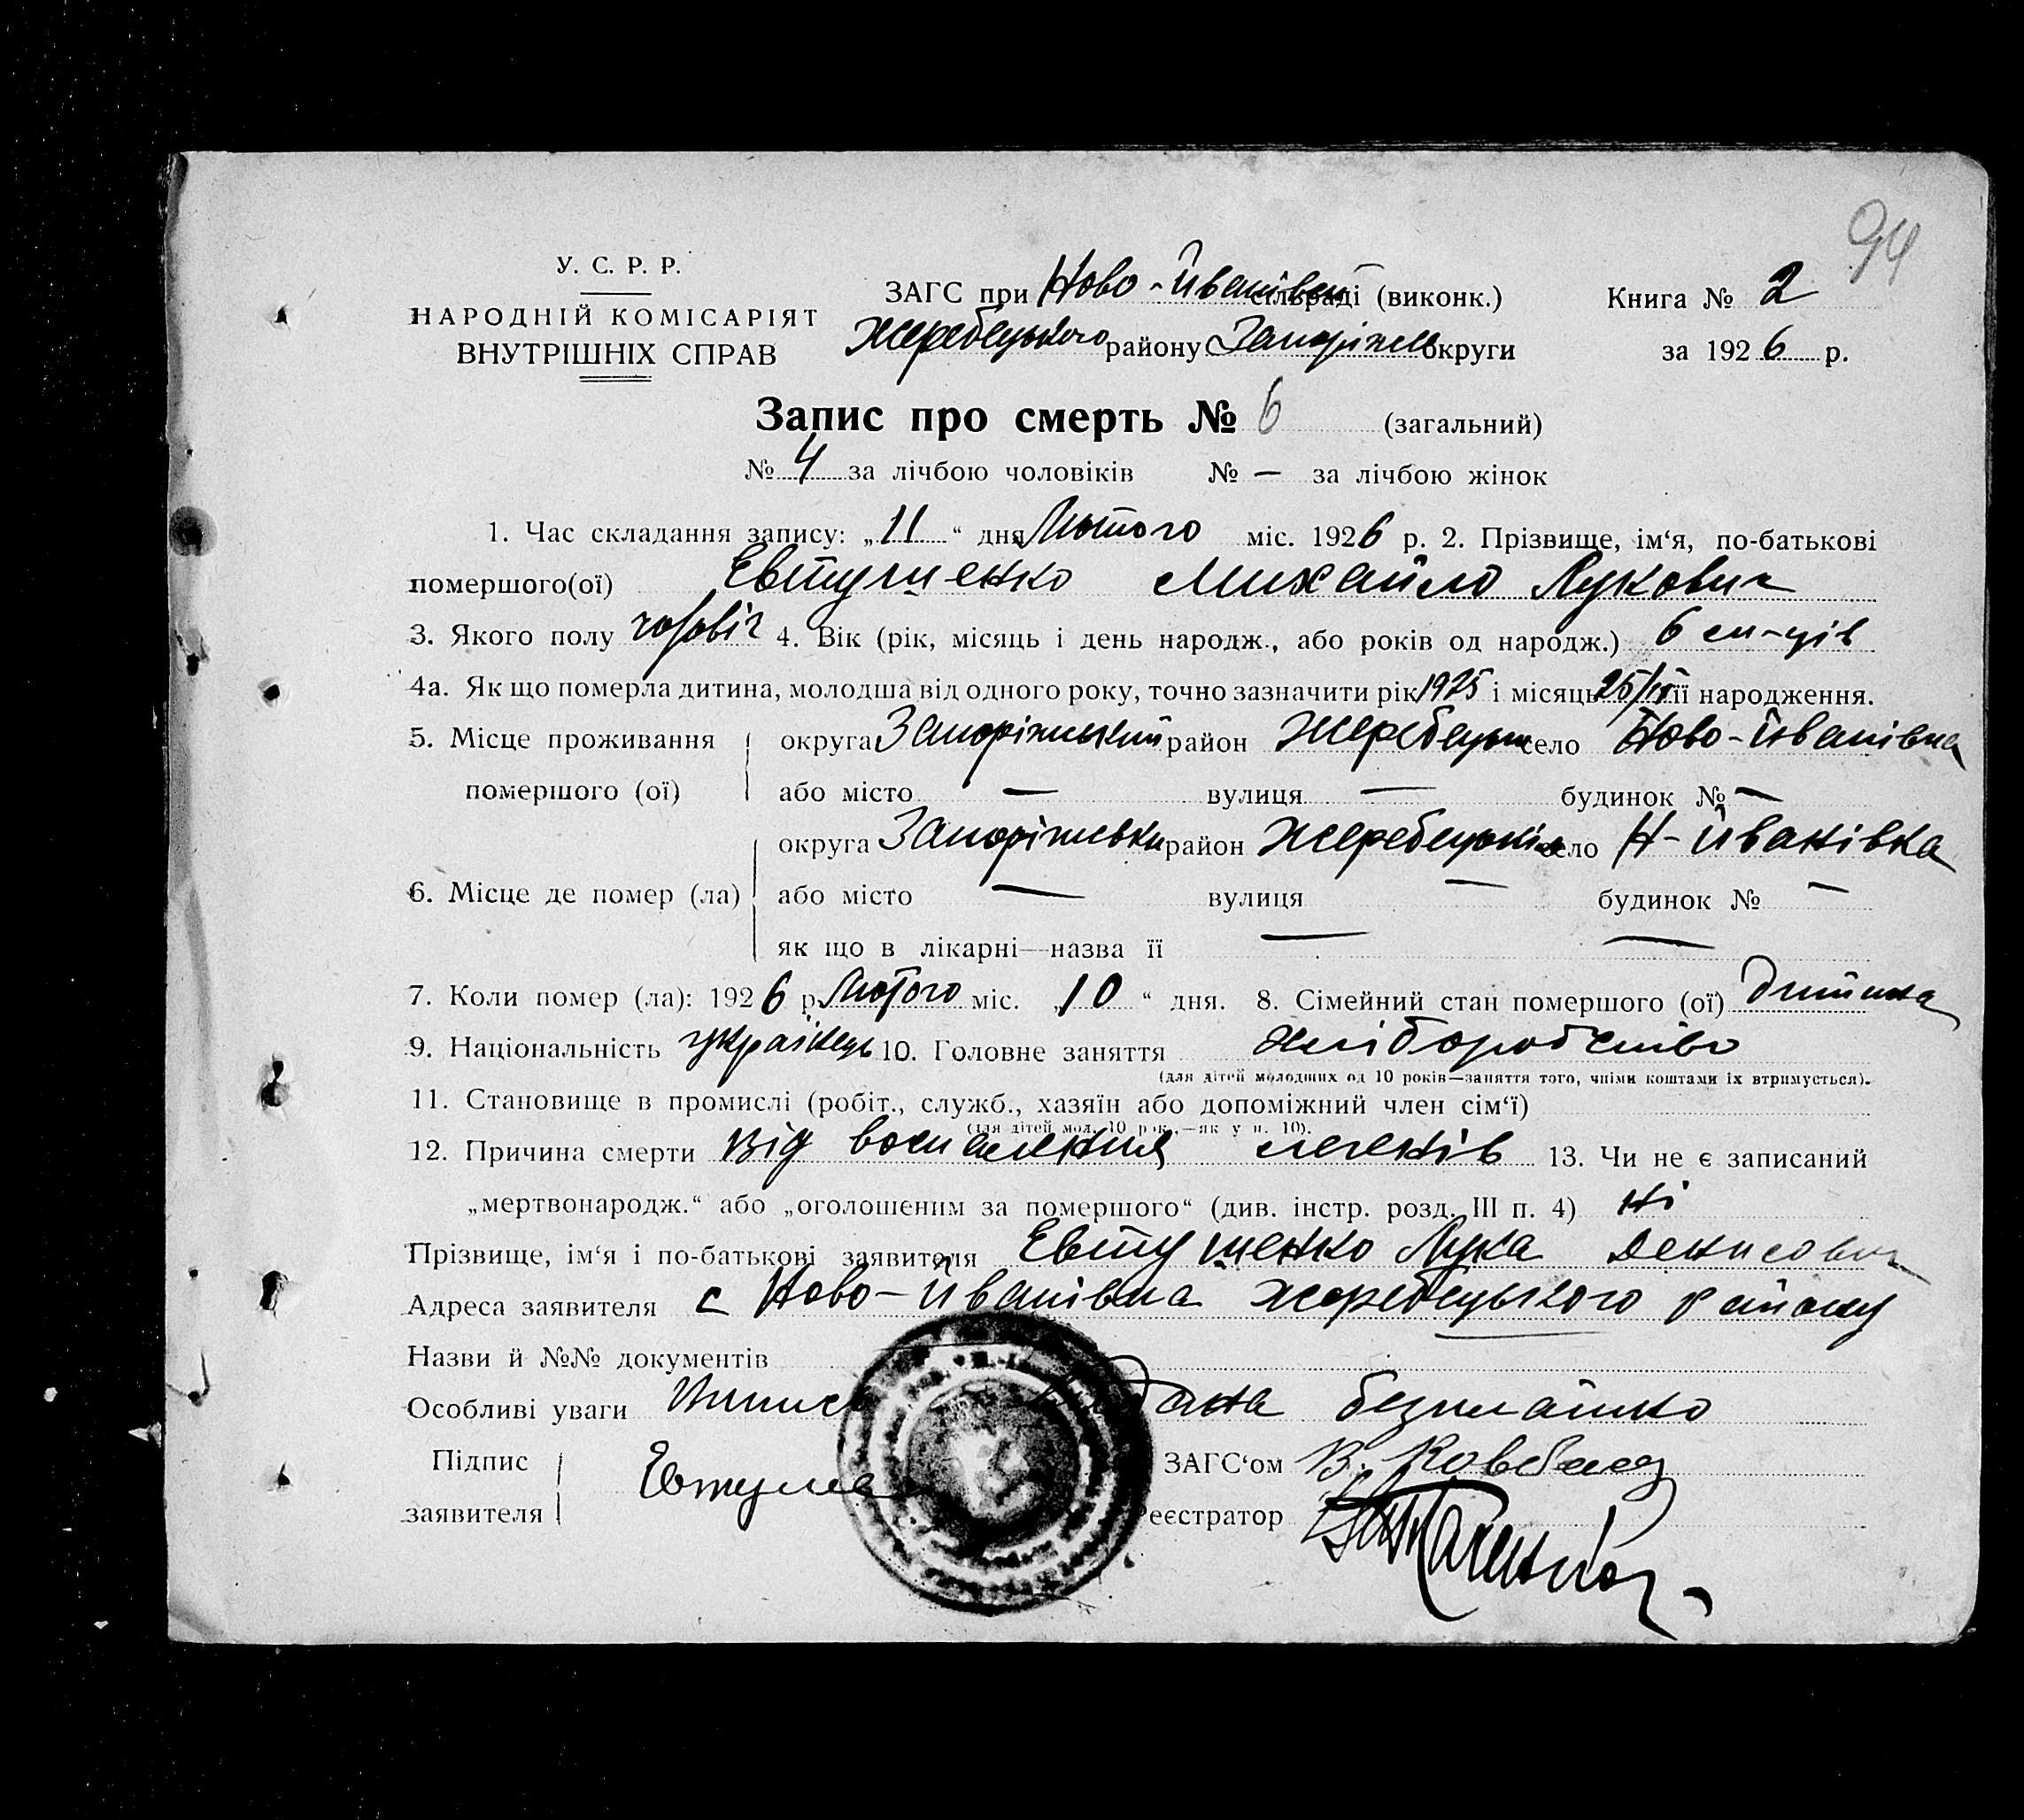 94
У. С. Р. Р.
НАРОДНІЙ КОМІСАРІЯТ
ВНУТРІШНІХ СПРАВ
ЗАГС при Ново-Иванівськ сільраді (виконк.)
Жеребецького району Запоріжс округи
Книга № 2
за 1926 р.
Запис про смерть № 6 (загальний)
№ 4 за лічбою чоловіків № — за лічбою жінок
1. Час складання запису: „11“ дня Лютого міс. 1926 р. 2. Прізвище, ім‘я, по-батькові
помершого(ої) Евтушенко Михайло Лукович
3. Якого полу чоловіч 4. Вік (рік, місяць і день народж., або років од народж.) 6 м-ців
4а. Як що померла дитина, молодша від одного року, точно зазначити рік 1925 і місяць її народження.
5. Місце проживання помершого (ої) округа Запоріжський район Жеребецьк село Ново-Иванівка
або місто — вулиця — будинок № —
6. Місце де помер (ла) округа Запоріжськи район Жеребецькій село Н-Иванівка
або місто — вулиця — будинок № —
як що в лікарні—назва її — —
7. Коли помер (ла): 1926 р. Лютого міс. „10“ дня. 8. Сімейний стан помершого (ої) дитина
9. Національність українець 10. Головне заняття хліборобство
(для дітей молодших од 10 років—заняття того, чиїми коштами їх втримується).
11. Становище в промислі (робіт., служб., хазяїн або допоміжний член сім‘ї)
(для дітей мол. 10 рок.,—як у п. 10).
12. Причина смерти Від воспаления легенів 13. Чи не є записаний
„мертвонародж.“ або „оголошеним за помершого“ (див. інстр. розд. III п. 4) ні
Прізвище, ім‘я і по-батькові заявителя Евтушенко Лука Денисович
Адреса заявителя с Ново-Иванівка жеребецького району
Назви й №№ документів
Особливі уваги Випись видана безплатно
Підпис заявителя Евтуше
ЗАГС‘ом В. Ковбаса
Реєстратор